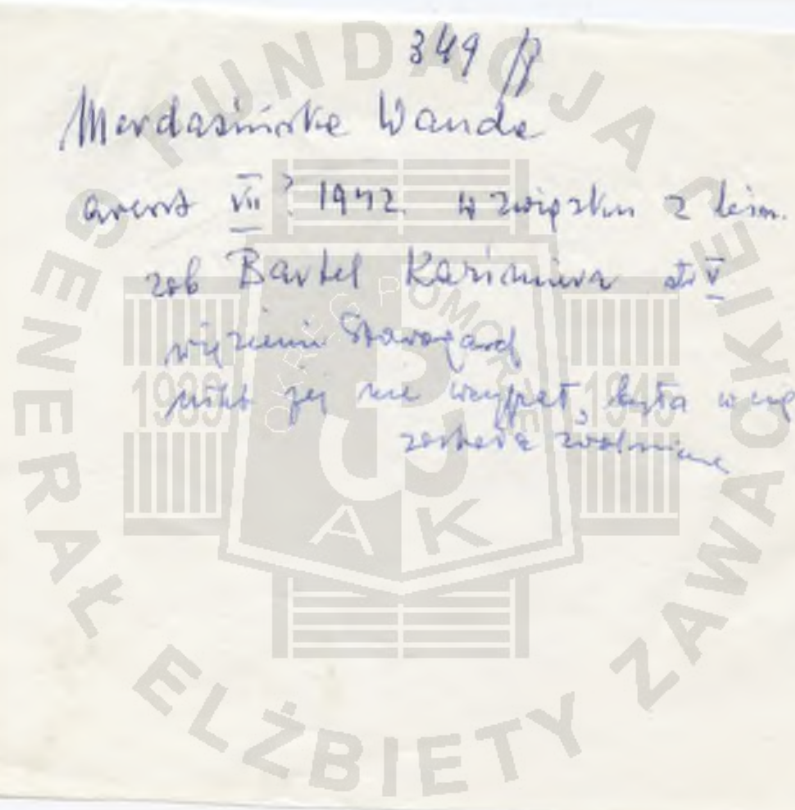 349
Merdasińska Wanda
areszt VII? 1942 w związku z
zob Bartel Kazimiera str V
więzienie Starogard
nikt jej nie wsypał, była w
została zwolniona
FUNDACJA GENERAŁ ELŻBIETY ZAWACKIEJ
OKRĘG POMORZE
1939 1945
AK